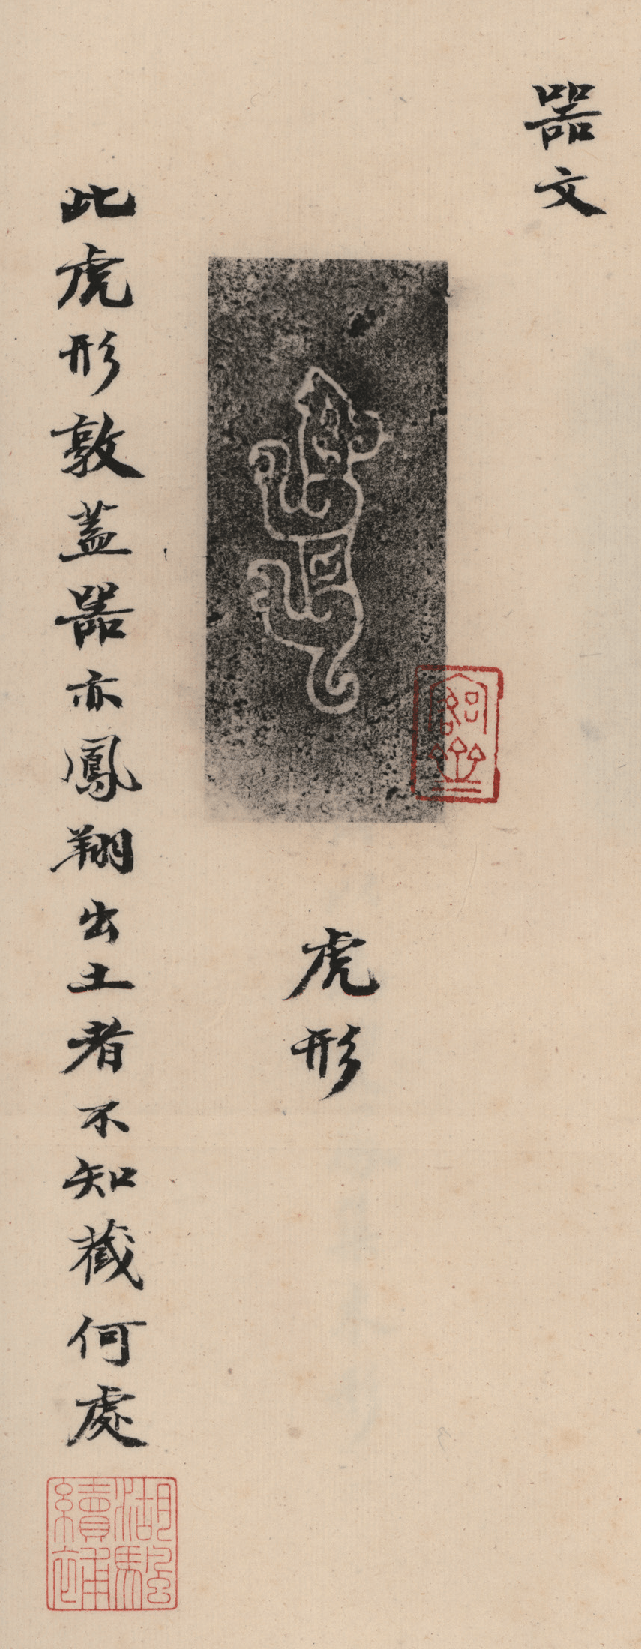 器文
虎形
此虎形敦蓋器亦鳳翔出土者不知藏何處